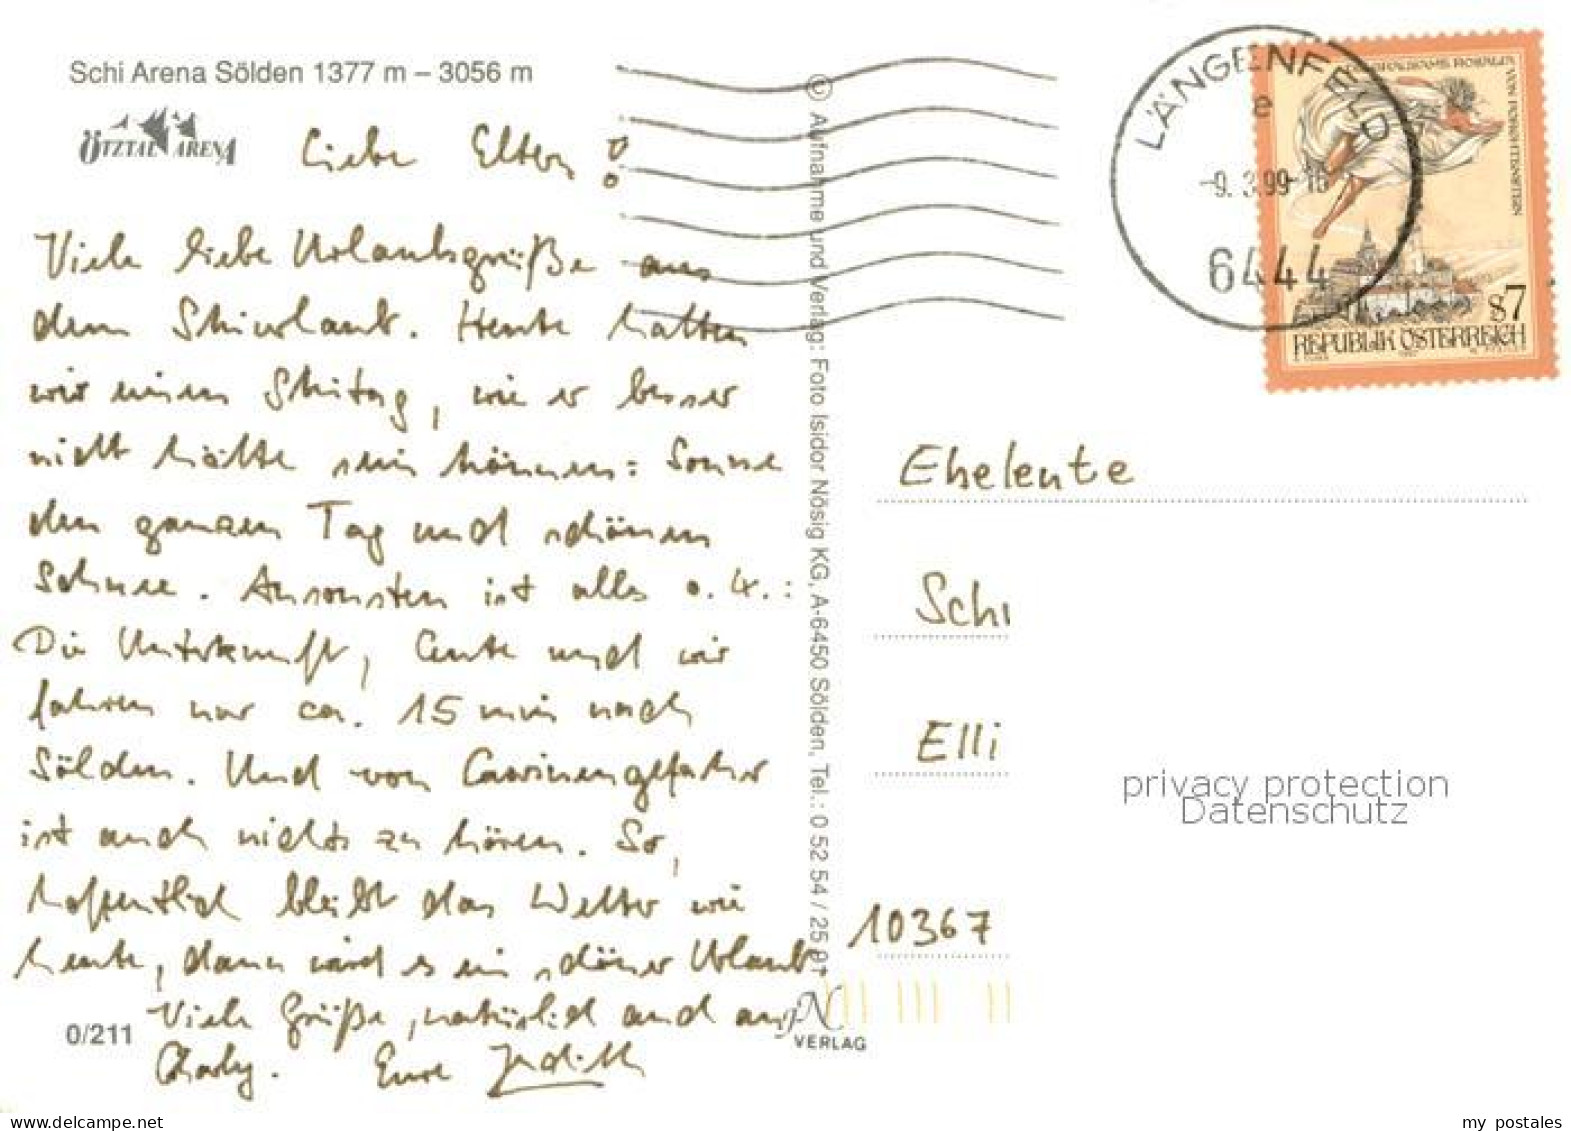 Schi Arena Sölden 1377 m – 3056 m
ÖTZTAL ARENA
Liebe Eltern!
Viele liebe Urlaubsgrüße aus
dem Skiurlaub. Heute hatten
wir einen Skitag, wie er besser
nicht hätte sein können: Sonne
den ganzen Tag und schönen
Schnee. Ansonsten ist alles o.k.:
Die Unterkunft, Leute und wir
fahren nur ca. 15 min nach
Sölden. Und von Lawinengefahr
ist auch nichts zu hören. So,
hoffentlich bleibt das Wetter wie
heute, dann wird es ein schöner Urlaub.
Viele Grüße, natürlich auch an
Charly. Eure Judith
0/211
© Aufnahme und Verlag: Foto Isidor Nösig KG, A-6450 Sölden, Tel.: 0 52 54 / 25 91
JN
VERLAG
LÄNGENFELD
e
-9. 3.99-16
6444
VON FORCHTENSTEIN
S7
REPUBLIK ÖSTERREICH
Eheleute
Schi
Elli
10367
privacy protection
Datenschutz
www.delcampe.net
my_postales